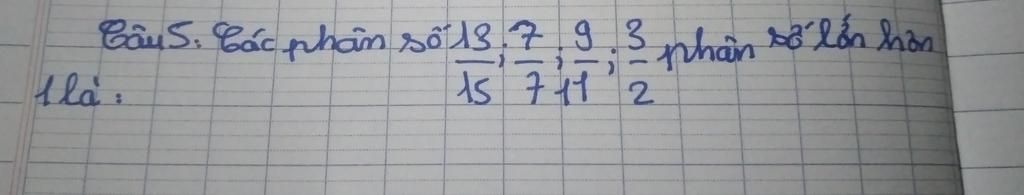 Câu 5. Các phân số 13/15; 7/7; 9/11; 3/2 phân số lớn hơn
1 là: